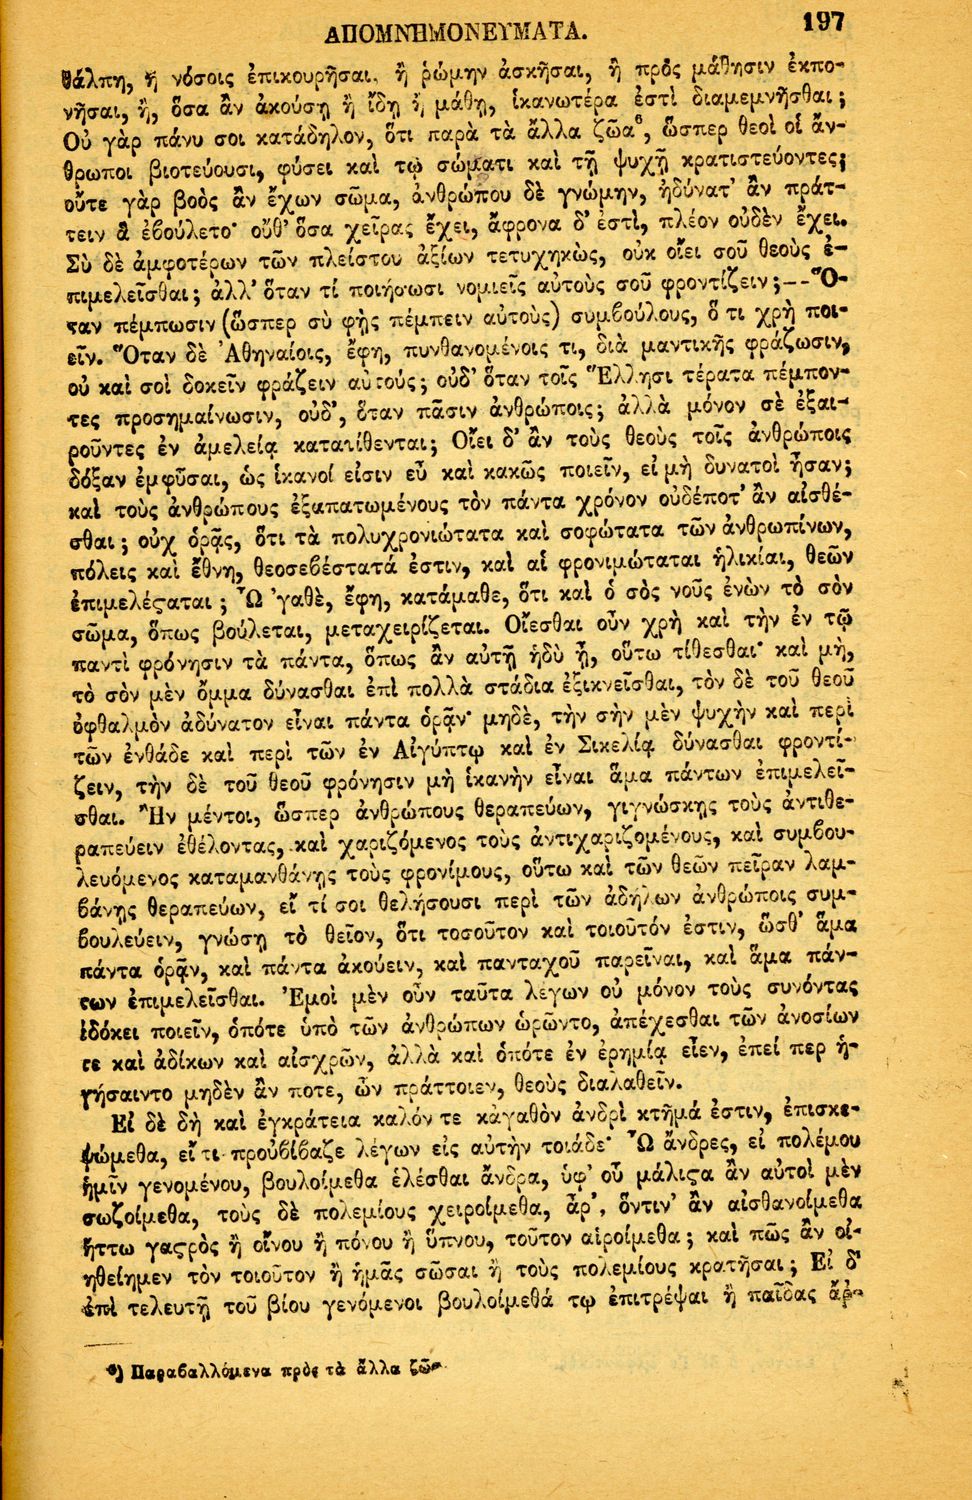 ΑΠΟΜΝΗΜΟΝΕΥΜΑΤΑ. 197
θάλπη, ἢ νόσοις ἐπικουρῆσαι, ἢ ῥώμην ἀσκῆσαι, ἢ πρὸς μάθησιν ἐκπο-
νῆσαι, ἢ, ὅσα ἂν ἀκούσῃ ἢ ἴδῃ ἢ μάθῃ, ἱκανωτέρα ἐστὶ διαμεμνῆσθαι;
Οὐ γὰρ πάνυ σοι κατάδηλον, ὅτι παρὰ τὰ ἄλλα ζῶα⁶, ὥσπερ θεοὶ οἱ ἄν-
θρωποι βιοτεύουσι, φύσει καὶ τῷ σώματι καὶ τῇ ψυχῇ κρατιστεύοντες;
οὔτε γὰρ βοὸς ἂν ἔχων σῶμα, ἀνθρώπου δὲ γνώμην, ἠδύνατ' ἂν πράτ-
τειν ἃ ἐβούλετο· οὔθ' ὅσα χεῖρας ἔχει, ἄφρονα δ' ἐστὶ, πλέον οὐδὲν ἔχει.
Σὺ δὲ ἀμφοτέρων τῶν πλείστου ἀξίων τετυχηκὼς, οὐκ οἴει σοῦ θεοὺς ἐ-
πιμελεῖσθαι; ἀλλ' ὅταν τί ποιήσωσι νομιεῖς αὐτοὺς σοῦ φροντίζειν;--Ὅ-
ταν πέμπωσιν (ὥσπερ σὺ φῂς πέμπειν αὐτοὺς) συμβούλους, ὅ τι χρὴ ποι-
εῖν. Ὅταν δὲ Ἀθηναίοις, ἔφη, πυνθανομένοις τι, διὰ μαντικῆς φράζωσιν,
οὐ καὶ σοὶ δοκεῖν φράζειν αὐτούς; οὐδ' ὅταν τοῖς Ἕλλησι τέρατα πέμπον-
τες προσημαίνωσιν, οὐδ', ὅταν πᾶσιν ἀνθρώποις; ἀλλὰ μόνον σὲ ἐξαι-
ροῦντες ἐν ἀμελείᾳ κατατίθενται; Οἴει δ' ἂν τοὺς θεοὺς τοῖς ἀνθρώποις
δόξαν ἐμφῦσαι, ὡς ἱκανοί εἰσιν εὖ καὶ κακῶς ποιεῖν, εἰ μὴ δυνατοὶ ἦσαν;
καὶ τοὺς ἀνθρώπους ἐξαπατωμένους τὸν πάντα χρόνον οὐδέποτ' ἂν αἰσθέ-
σθαι; οὐχ ὁρᾷς, ὅτι τὰ πολυχρονιώτατα καὶ σοφώτατα τῶν ἀνθρωπίνων,
πόλεις καὶ ἔθνη, θεοσεβέστατά ἐστιν, καὶ αἱ φρονιμώταται ἡλικίαι, θεῶν
ἐπιμελέϛαται; Ὦ 'γαθὲ, ἔφη, κατάμαθε, ὅτι καὶ ὁ σὸς νοῦς ἐνὼν τὸ σὸν
σῶμα, ὅπως βούλεται, μεταχειρίζεται. Οἴεσθαι οὖν χρὴ καὶ τὴν ἐν τῷ
παντὶ φρόνησιν τὰ πάντα, ὅπως ἂν αὐτῇ ἡδὺ ᾖ, οὕτω τίθεσθαι· καὶ μὴ,
τὸ σὸν μὲν ὄμμα δύνασθαι ἐπὶ πολλὰ στάδια ἐξικνεῖσθαι, τὸν δὲ τοῦ θεοῦ
ὀφθαλμὸν ἀδύνατον εἶναι πάντα ὁρᾷν· μηδὲ, τὴν σὴν μὲν ψυχὴν καὶ περὶ
τῶν ἐνθάδε καὶ περὶ τῶν ἐν Αἰγύπτῳ καὶ ἐν Σικελίᾳ δύνασθαι φροντί-
ζειν, τὴν δὲ τοῦ θεοῦ φρόνησιν μὴ ἱκανὴν εἶναι ἅμα πάντων ἐπιμελεῖ-
σθαι. Ἢν μέντοι, ὥσπερ ἀνθρώπους θεραπεύων, γιγνώσκῃς τοὺς ἀντιθε-
ραπεύειν ἐθέλοντας, καὶ χαριζόμενος τοὺς ἀντιχαριζομένους, καὶ συμβου-
λευόμενος καταμανθάνῃς τοὺς φρονίμους, οὕτω καὶ τῶν θεῶν πεῖραν λαμ-
βάνῃς θεραπεύων, εἴ τί σοι θελήσουσι περὶ τῶν ἀδήλων ἀνθρώποις συμ-
βουλεύειν, γνώσῃ τὸ θεῖον, ὅτι τοσοῦτον καὶ τοιοῦτόν ἐστιν, ὥσθ' ἅμα
πάντα ὁρᾷν, καὶ πάντα ἀκούειν, καὶ πανταχοῦ παρεῖναι, καὶ ἅμα πάν-
των ἐπιμελεῖσθαι. Ἐμοὶ μὲν οὖν ταῦτα λέγων οὐ μόνον τοὺς συνόντας
ἐδόκει ποιεῖν, ὁπότε ὑπὸ τῶν ἀνθρώπων ὁρῶντο, ἀπέχεσθαι τῶν ἀνοσίων
τε καὶ ἀδίκων καὶ αἰσχρῶν, ἀλλὰ καὶ ὁπότε ἐν ἐρημίᾳ εἶεν, ἐπεί περ ἡ-
γήσαιντο μηδὲν ἄν ποτε, ὧν πράττοιεν, θεοὺς διαλαθεῖν.
Εἰ δὲ δὴ καὶ ἐγκράτεια καλόν τε κἀγαθὸν ἀνδρὶ κτῆμά ἐστιν, ἐπισκε-
ψώμεθα, εἴ τι προὐβίβαζε λέγων εἰς αὐτὴν τοιάδε· Ὦ ἄνδρες, εἰ πολέμου
ἡμῖν γενομένου, βουλοίμεθα ἑλέσθαι ἄνδρα, ὑφ' οὗ μάλιϛα ἂν αὐτοὶ μὲν
σωζοίμεθα, τοὺς δὲ πολεμίους χειροίμεθα, ἆρ', ὅντιν' ἂν αἰσθανοίμεθα
ἥττω γαϛρὸς ἢ οἴνου ἢ πόνου ἢ ὕπνου, τοῦτον αἱροίμεθα; καὶ πῶς ἂν οἰ-
ηθείημεν τὸν τοιοῦτον ἢ ἡμᾶς σῶσαι ἢ τοὺς πολεμίους κρατῆσαι; Εἰ δ'
ἐπὶ τελευτῇ τοῦ βίου γενόμενοι βουλοίμεθά τῳ ἐπιτρέψαι ἢ παῖδας ἄρ-
⁶) Παραβαλλόμενα πρὸς τὰ ἄλλα ζῶα.